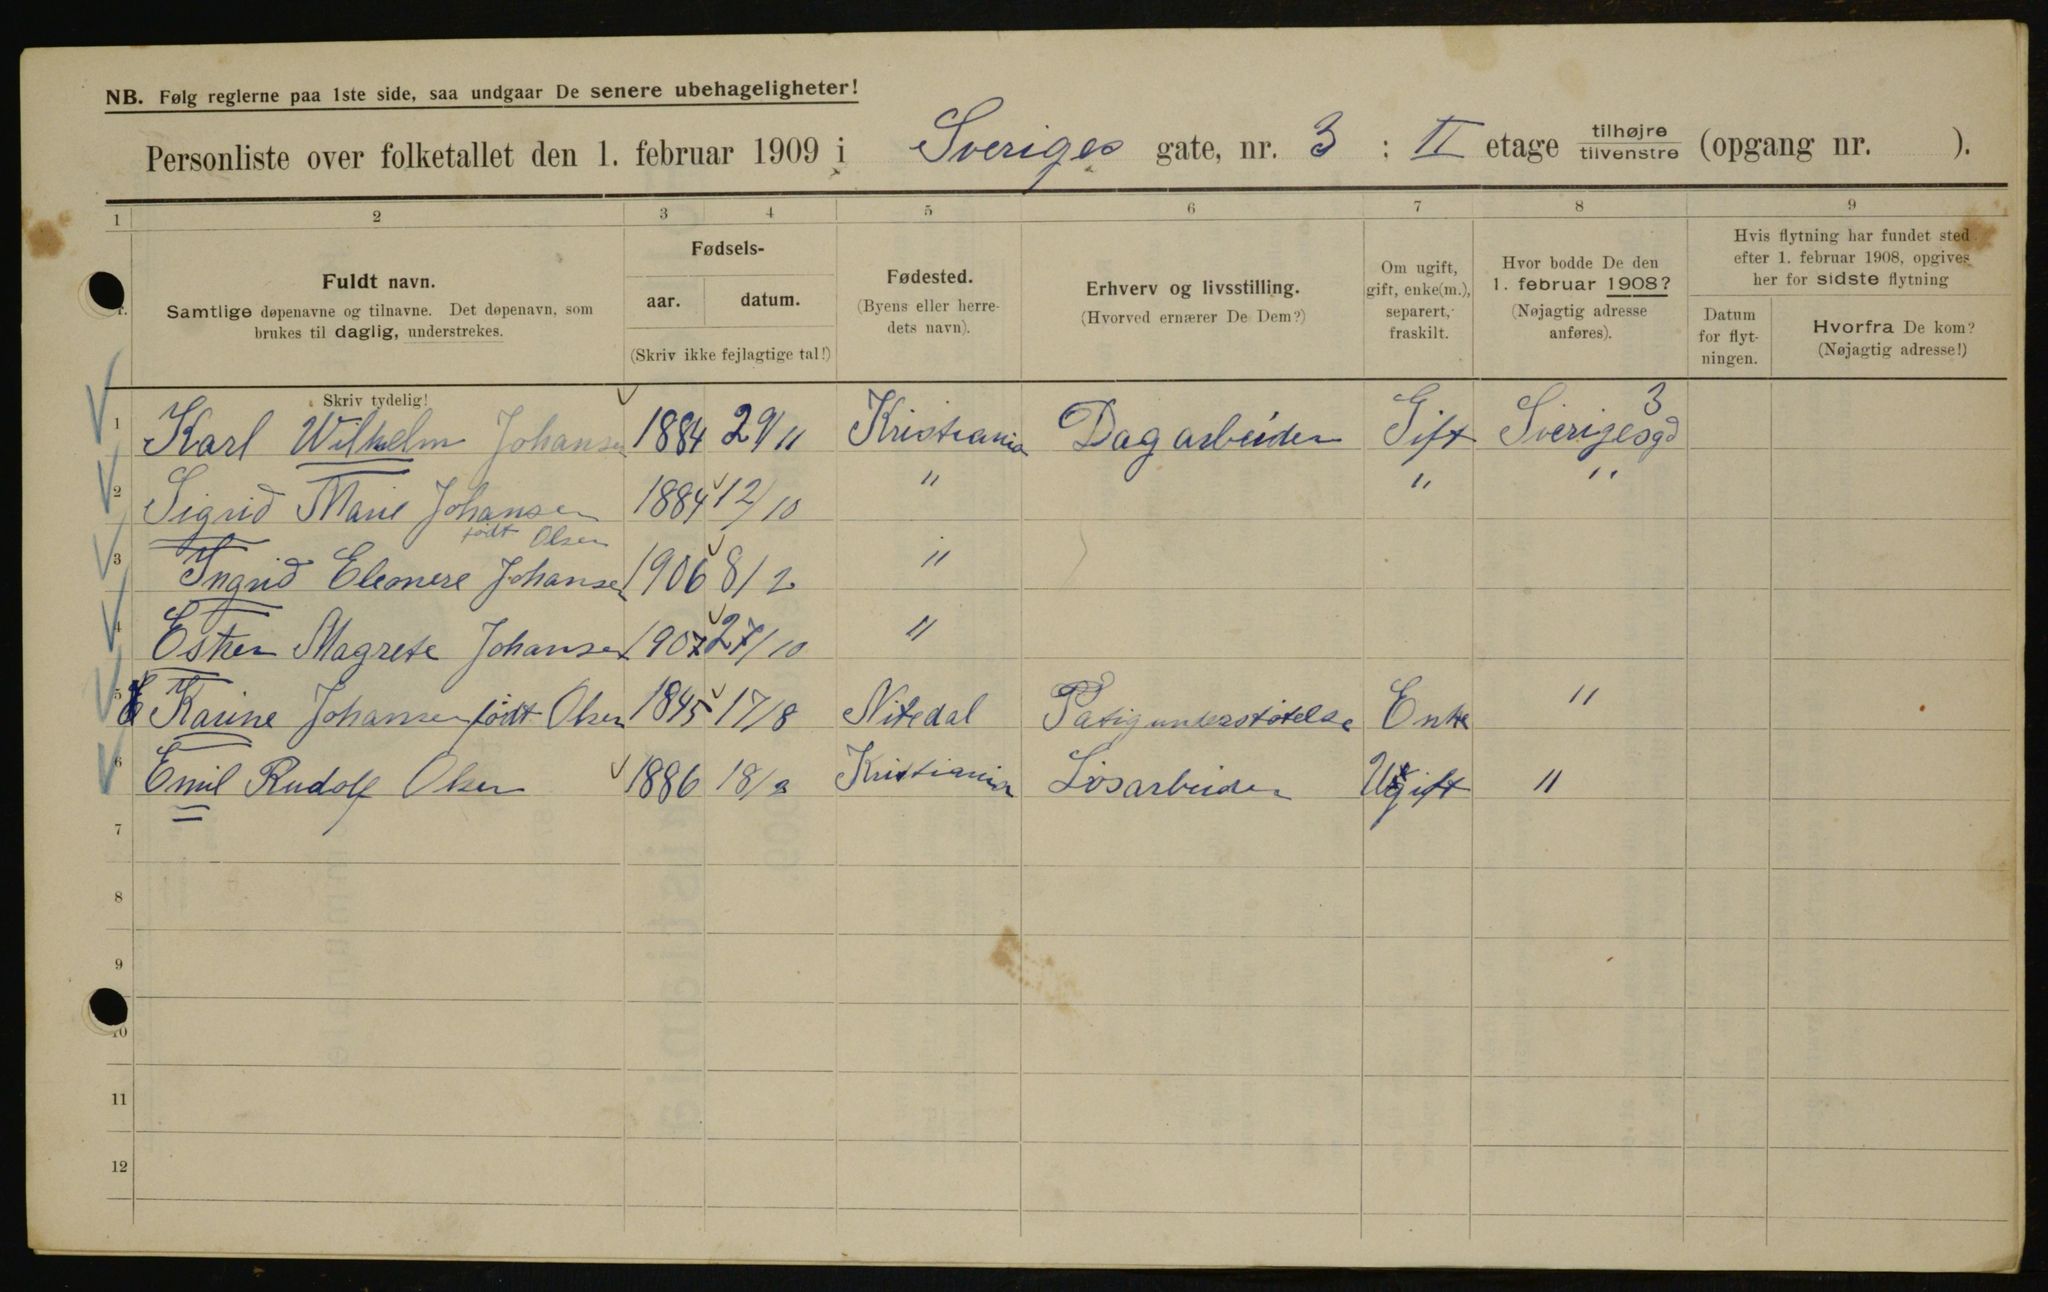 NB. Følg reglerne paa 1ste side, saa undgaar De senere ubehageligheter!
Personliste over folketallet den 1. februar 1909 i Sveriges gate, nr. 3 : II etage tilhøjre tilvenstre (opgang nr. ).
1 2 3 4 5 6 7 8 9
Fuldt navn.
Samtlige døpenavne og tilnavne. Det døpenavn, som
brukes til daglig, understrekes.
Fødsels-
aar. datum.
(Skriv ikke fejlagtige tal!)
Fødested.
(Byens eller herre-
dets navn).
Erhverv og livsstilling.
(Hvorved ernærer De Dem?)
Om ugift,
gift, enke(m.),
separert,
fraskilt.
Hvor bodde De den
1. februar 1908?
(Nøjagtig adresse
anføres).
Hvis flytning har fundet sted
efter 1. februar 1908, opgives
her for sidste flytning
Datum
for flyt-
ningen.
Hvorfra De kom?
(Nøjagtig adresse!)
Skriv tydelig!
1 Karl Wilhelm Johansen 1884 29/11 Kristiania Dagarbeider Gift Sverigesgd 3
2 Sigrid Marie Johansen 1884 12/10 " " "
født Olsen
3 Ingrid Eleonere Johansen 1906 8/2 "
4 Esther Magrete Johansen 1907 27/10 "
5 Karine Johansen født Olsen 1845 17/8 Nitedal Fatigunderstøtelse Enke "
6 Emil Rudolf Olsen 1886 18/2 Kristiania Løsarbeider Ugift "
7
8
9
10
11
12